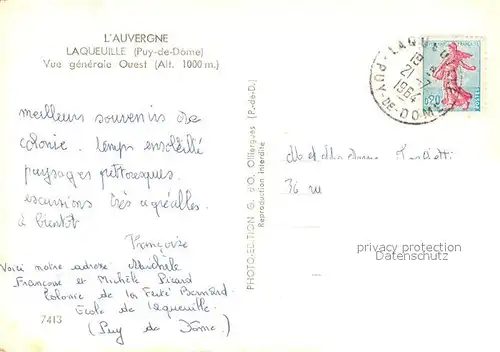 L'AUVERGNE
LAQUEUILLE (Puy-de-Dôme)
Vue générale Ouest (Alt. 1000 m.)
meilleurs souvenirs de
colonie. temps ensoleillé
paysages pittoresques.
excursions très agréables.
à bientôt
Françoise
Voici notre adresse Michèle
Françoise et Michèle Picard
Colonie de la Ferté Bernard
École de Laqueuille.
(Puy de Dôme)
7413
PHOTO-EDITION G. d'O. Olliergues (P.-de-D.)
Reproduction interdite
LAQUEUILLE
21 -7
1964
PUY-DE-DOME
0,20
POSTES
36 rue
privacy protection
Datenschutz